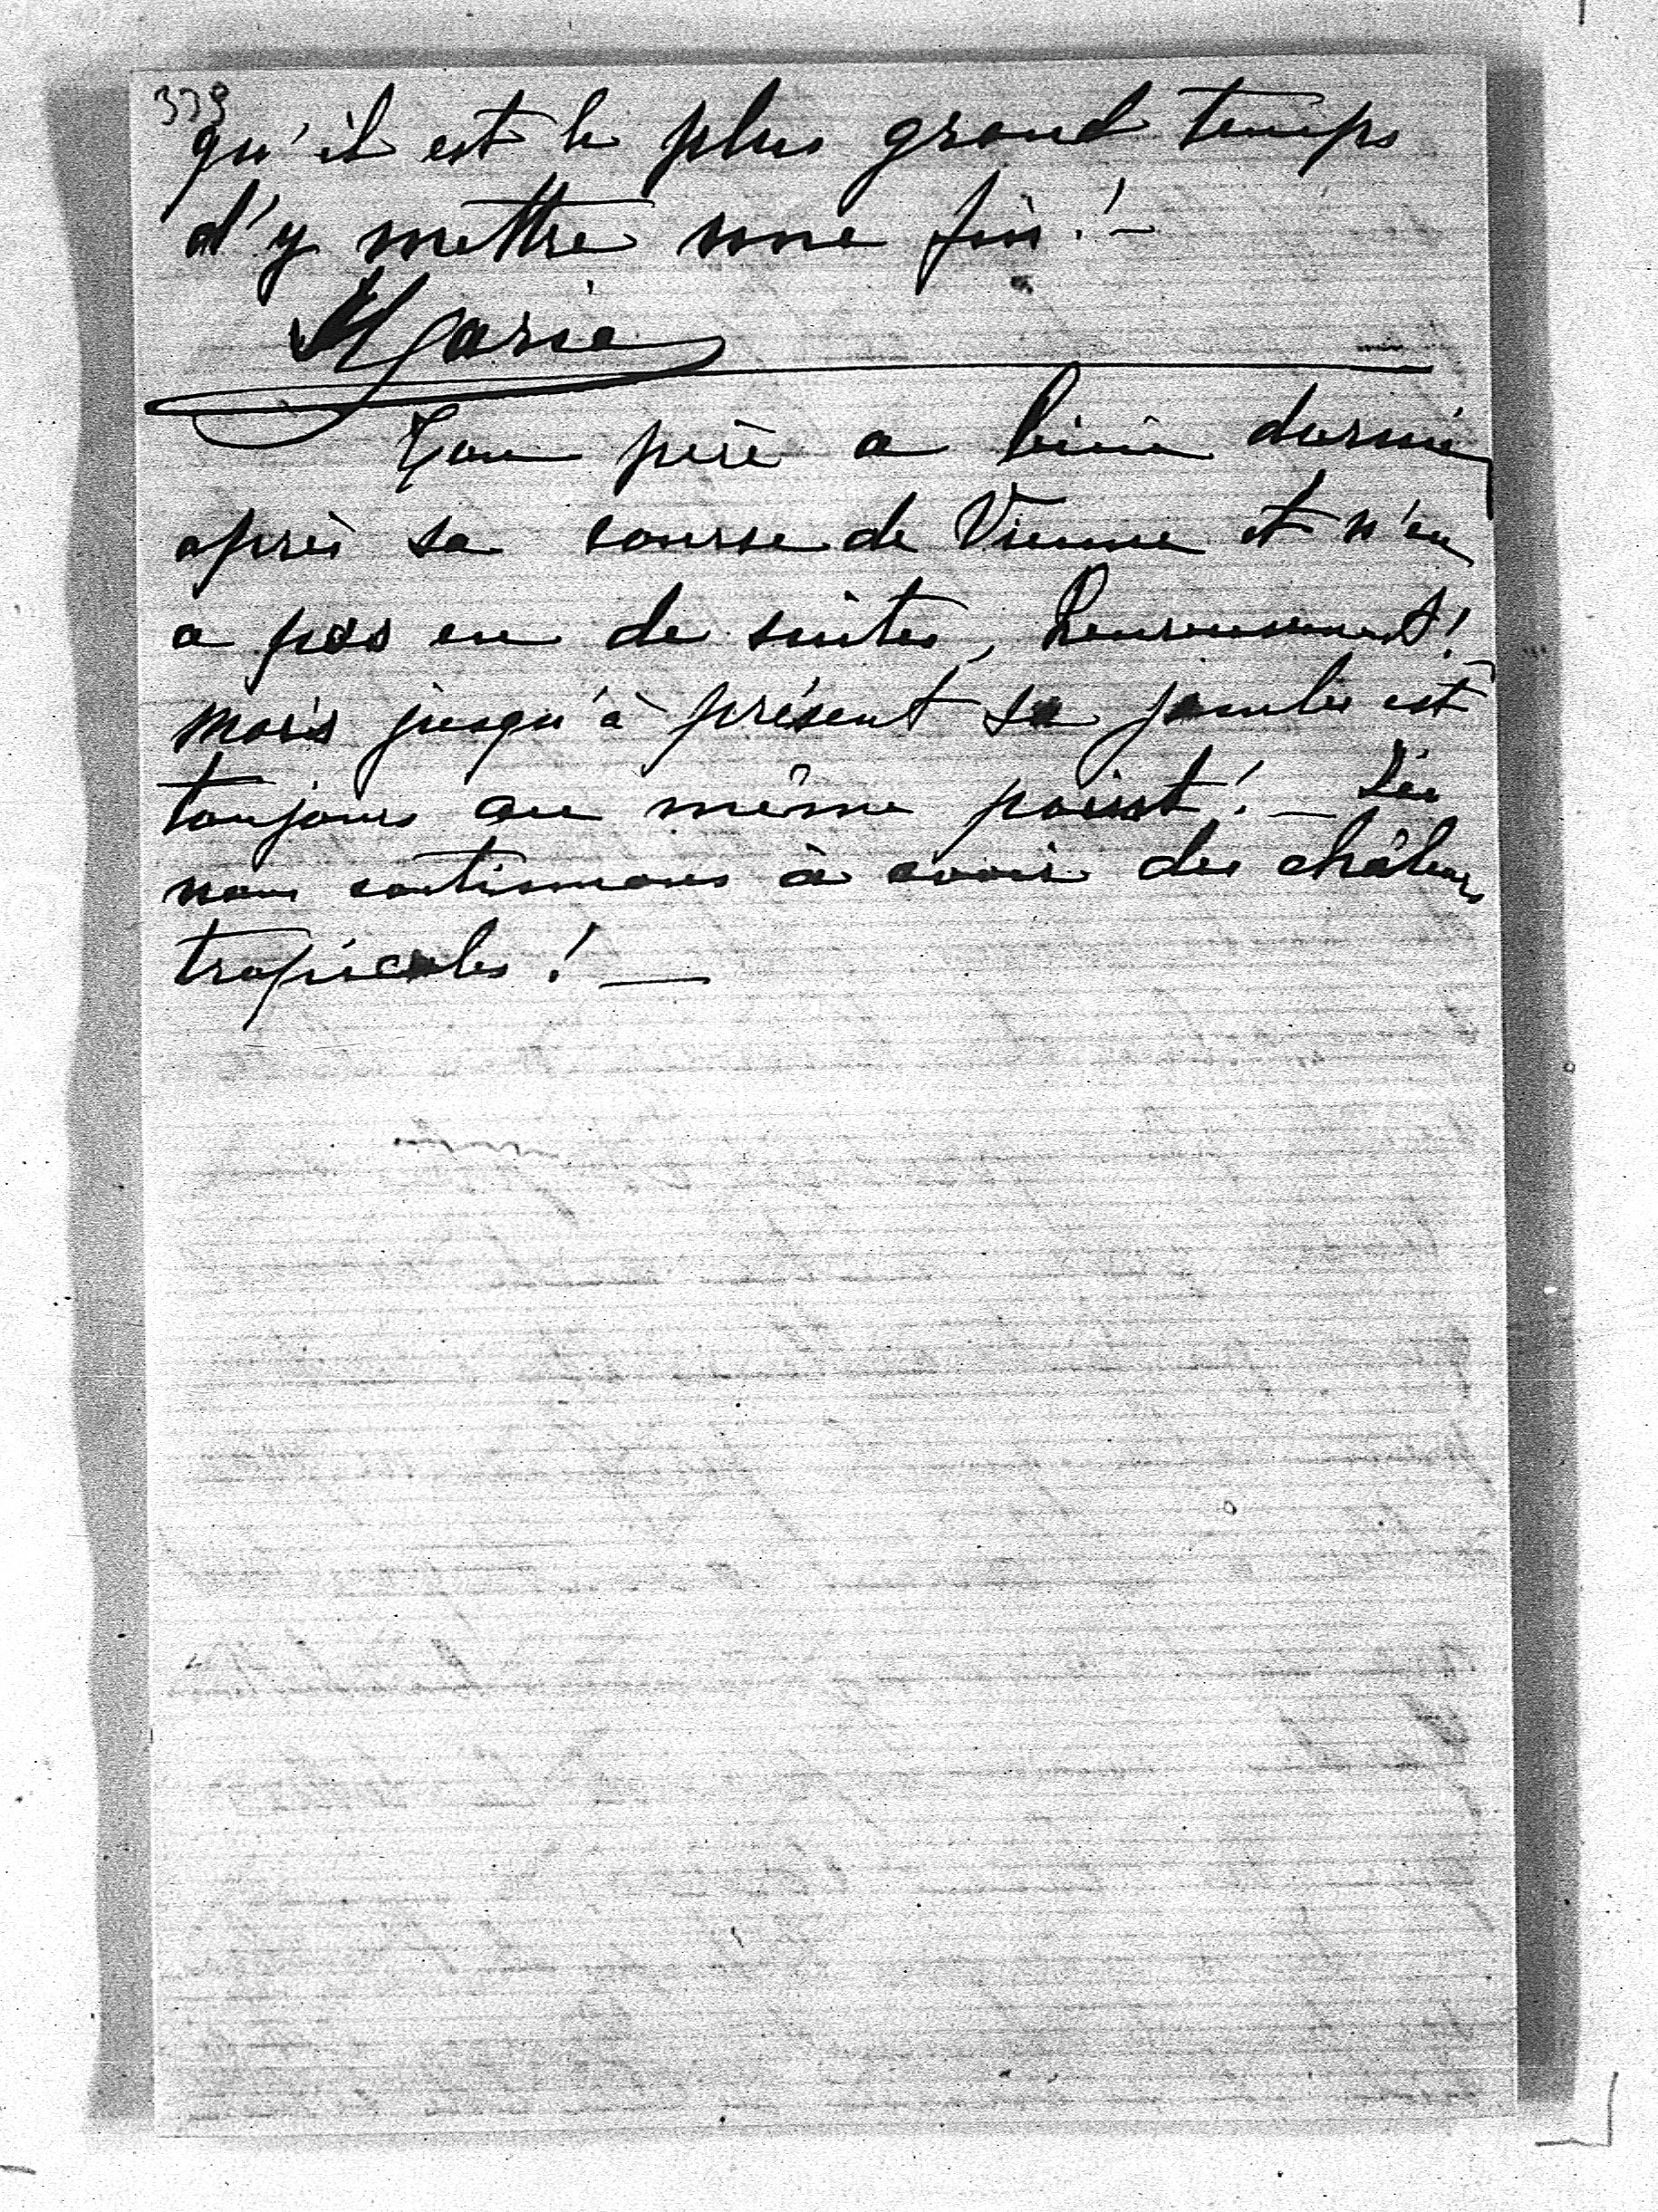 339
qu'il est le plus grand temps
d'y mettre une fin! -
Marie
Ton père a bien dormi
après sa course de Vienne et n'en
a pas eu de suites, heureusement!
mais jusqu'à présent sa jambe est
toujours au même point! - Ici
nous continuons à avoir des chaleurs
tropicales! -